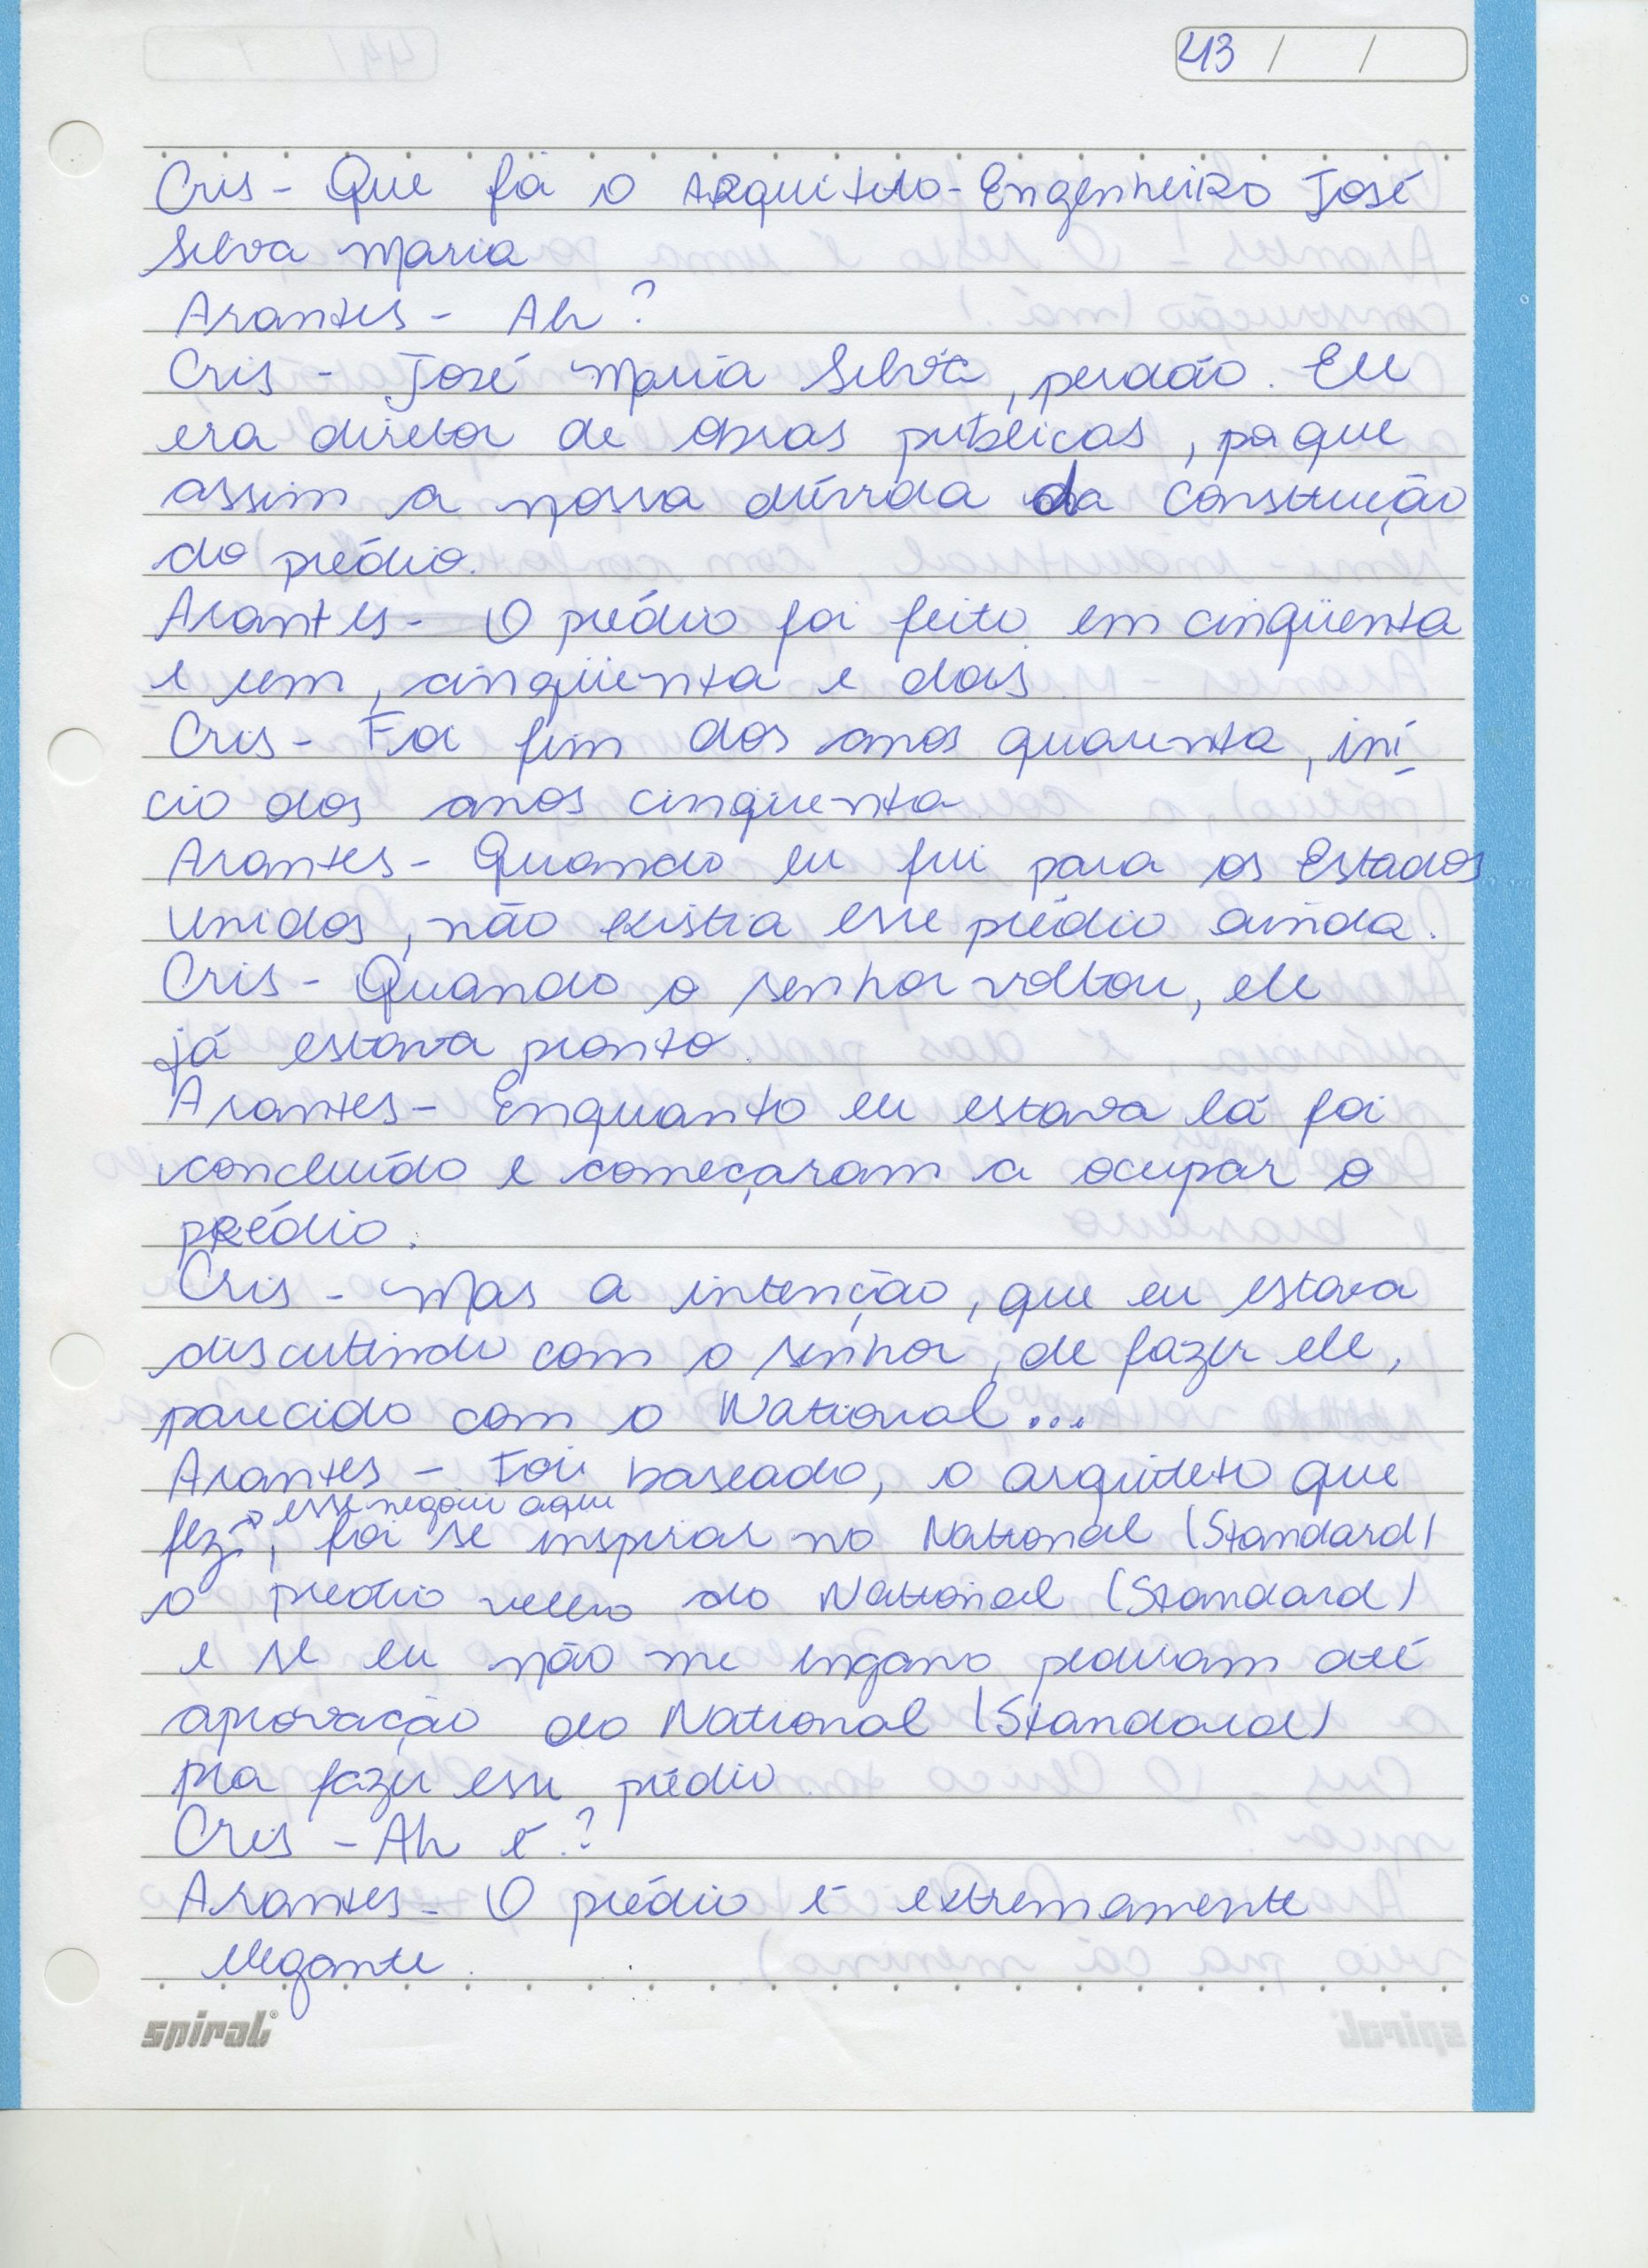 43 / /
Cris - Que foi o Arquiteto-Engenheiro José
Silva Maria
Arantes - Ah?
Cris - José Maria Silva, perdão. Ele
era diretor de obras públicas, pa que
assim a nossa dúvida da construção
do prédio.
Arantes - O prédio foi feito em cinqüenta
e um, cinqüenta e dois.
Cris - Foi fim dos anos quarenta, iní
cio dos anos cinquenta
Arantes - Quando eu fui para os Estados
Unidos, não existia esse prédio ainda.
Cris - Quando o senhor voltou, ele
já estava pronto.
Arantes - Enquanto eu estava lá foi
concluído e começaram a ocupar o
prédio.
Cris - Mas a intenção, que eu estava
discutindo com o senhor, de fazer ele,
parecido com o National...
Arantes - Foi baseado, o arquiteto que
esse negoci aqui
fez, foi se inspirar no National (Standard)
o predio velho do National (Standard)
e se eu não me engano pediram até
aprovação do National (Standard)
pra fazer esse prédio
Cris - Ah é?
Arantes - O prédio é extremamente
elegante.
spiral®